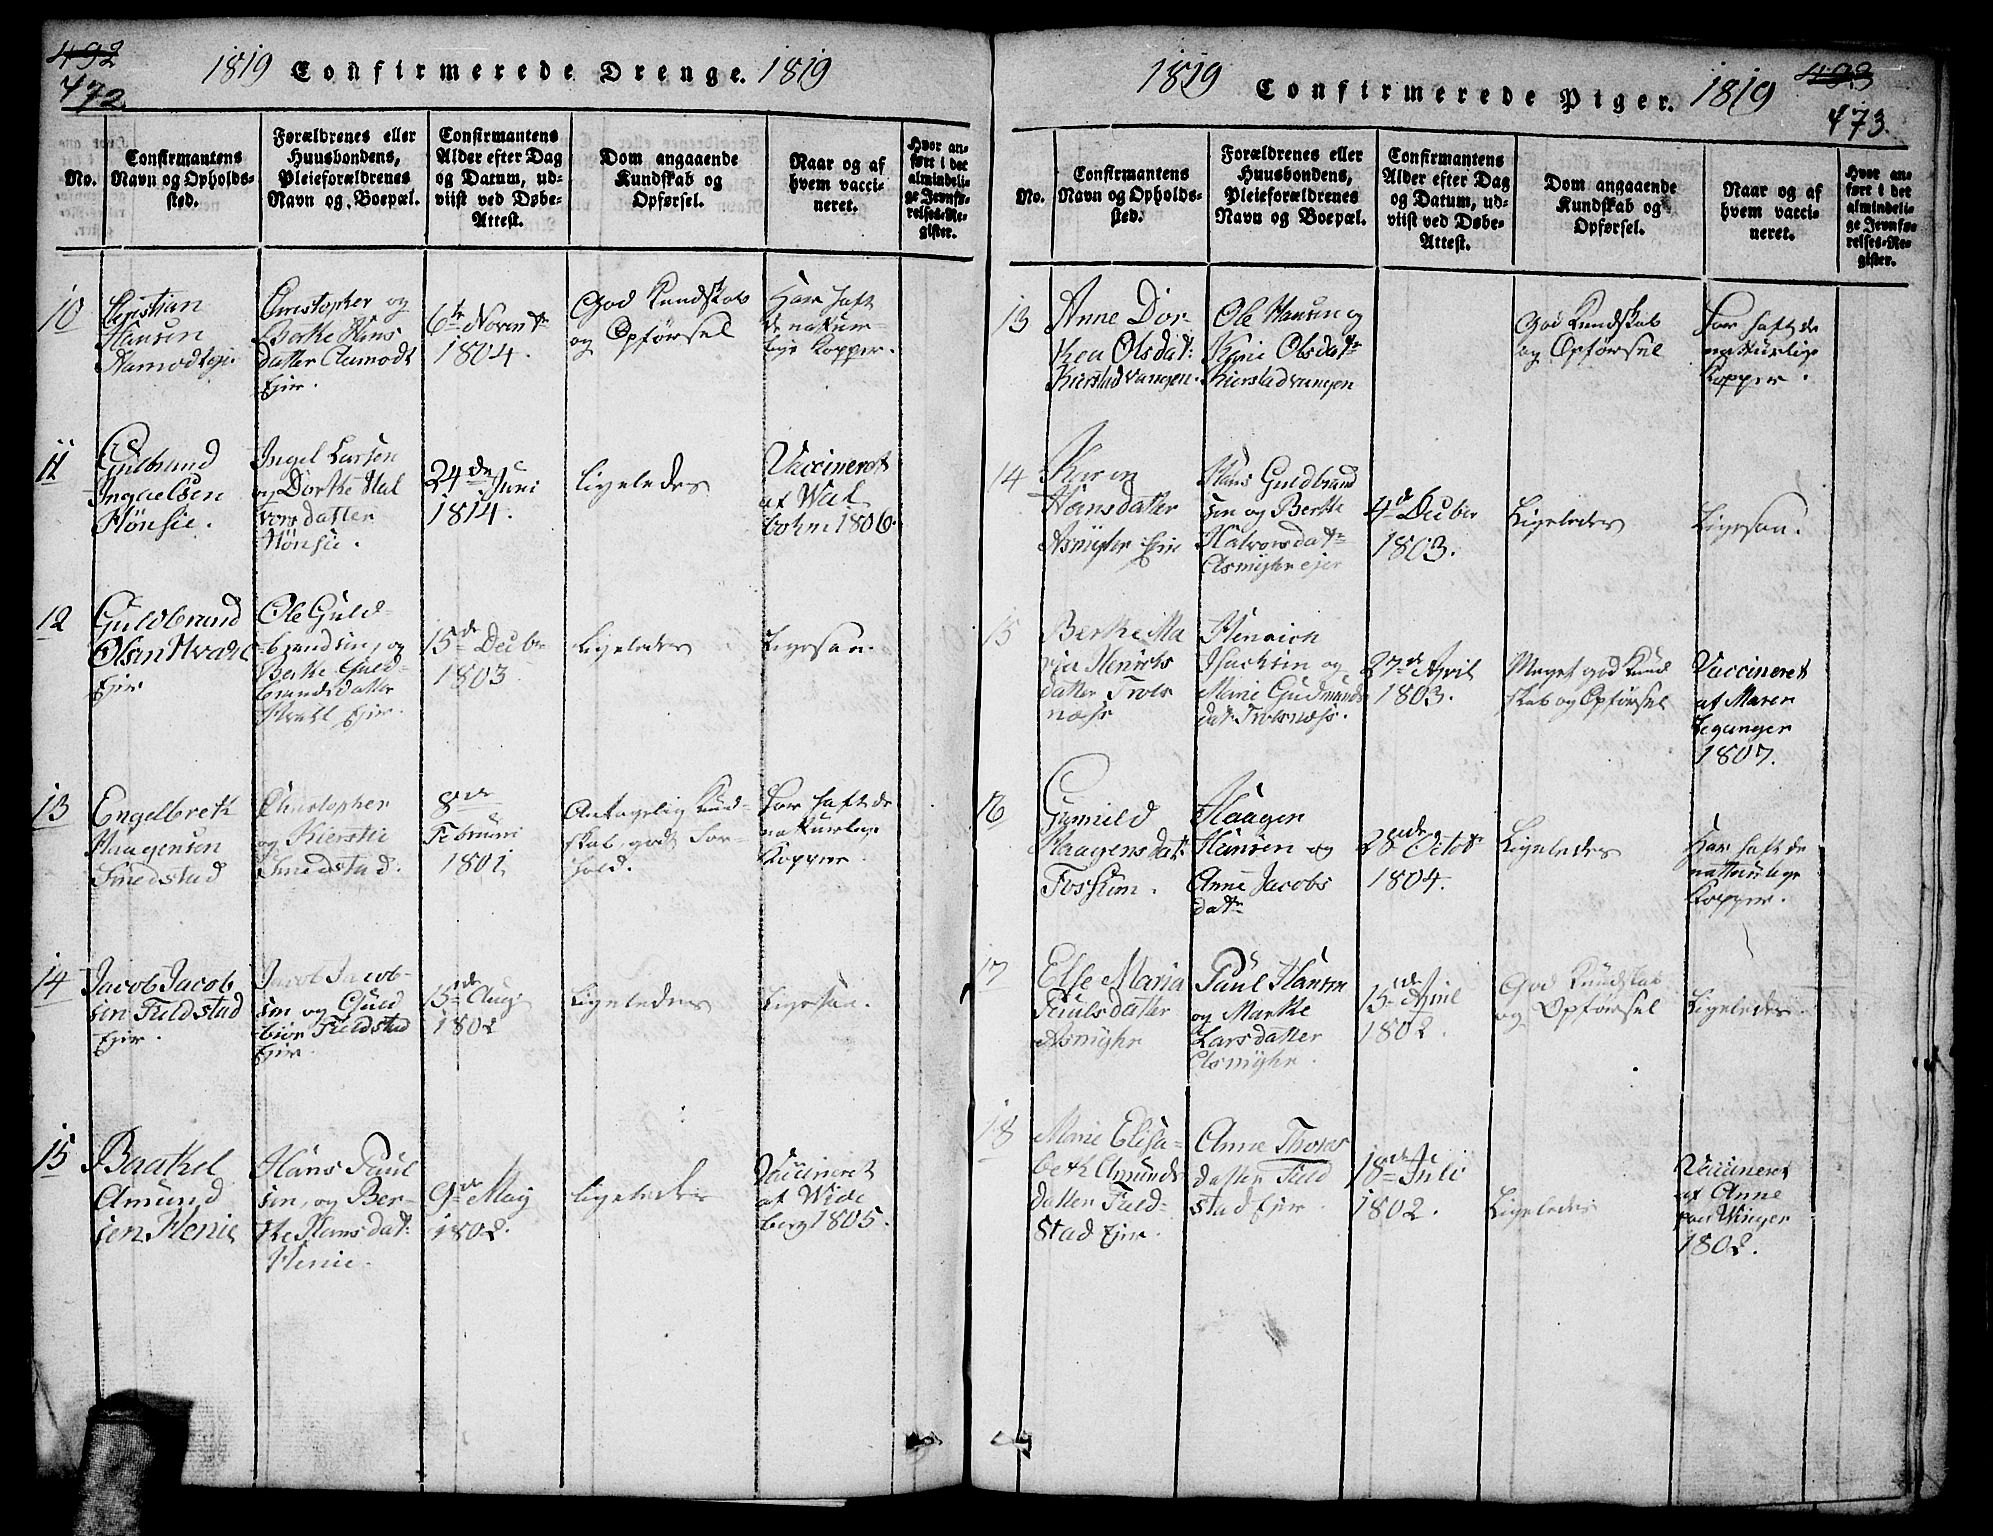 492
472.
1819 Confirmerede Drenge. 1819
No.
Confirmantens
Navn og Opholds-
sted.
Forældrenes eller
Huusbondens,
Pleieforældrenes
Navn og Boepæl.
Confirmantens
Alder efter Dag
og Datum, ud-
viist ved Døbe-
Attest.
Dom angaaende
Kundskab og
Opførsel.
Naar og af
hvem vacci-
neret.
Hvor an-
ført i det
almindeli-
ge Jevnfø-
relses-Re-
gister.
10
Christian
Hansen
Aamodtejr.
Christopher og
Berthe Hans
datter Aamodt
Ejer.
6te Novembr
1804.
God Kundskab
og Opførsel
Har haft
de natur-
lige Kopper.
11
Gulbrand
Ingvelsen
Hønsie.
Ingel Larsen
og Dorthe Hal
vors datter
Hønsie.
24de Juni
1814.
Ligeledes
Vaccineret
af Wal
bohm 1806.
12
Guldbrand
Olsen Hvatl
Ejer
Ole Guld-
brandsen, og
Berthe Guld-
brandsdatter
Hvatl Ejer.
15de Decbr
1803.
Ligeledes
Ligesaa.
13
Engelbreth
Haagensen
Smedstad
Christopher
og Kierstie
Smedstad.
8de
Februari
1801
Antagelig Kund-
skab, godt For-
hold.
Har haft de
naturlige
Kopper.
14
Jacob Jacob
sen Fuldstad
Ejer.
Jacob Jacob-
sen og Guld
biør Fuldstad
Ejer.
15de Aug
1802
Ligeledes
Ligesaa.
15
Baathel
Amund
sen Henie
Hans Paul
sen, og Ber-
the Hans dat:
Henie.
9de May
1802.
Ligeledes
Vaccineret
af Wide
berg 1805.
1819 Confirmerede Piger. 1819
493
473.
No.
Confirmantens
Navn og Opholds-
sted.
Forældrenes eller
Huusbondens,
Pleieforældrenes
Navn og Boepæl.
Confirmantens
Alder efter Dag
og Datum, ud-
viist ved Døbe-
Attest.
Dom angaaende
Kundskab og
Opførsel.
Naar og af
hvem vacci-
neret.
Hvor an-
ført i det
almindeli-
ge Jevnfø-
relses-Re-
gister.
13
Anne Dor-
thea Olsdat:
Kierstadvangen.
Ole Hansen og
Karie Olsdatr
Kierstadvangen
God Kundskab
og Opførsel
Har haft de
naturlige
Kopper.
14
Karen
Hansdatter
Asmyhr Eie
Hans Guldbrand
sen og Berthe
Halvorsdatr
Asmyhr ejer
4de Decber
1803.
Ligeledes
Ligesaa.
15
Berthe Ma
ria Henrichs
datter Trols
næss
Henrich
Isachsen og
Marie Gudmunds
dat: Trolsnæss.
27de April
1803.
Meget god Kund
skab og Opførsel
Vaccineret
af Maren
Leganger
1807.
16
Gunnild
Haagensdat:
Fossum.
Haagen
Hansen og
Anne Jacobs
datr
28de Octob
1804.
Ligeledes
Har haft de
naturlige
Kopper.
17
Else Maria
Paulsdatter
Asmyhr
Paul Hansen
og Marthe
Larsdatter
Asmyhr.
15de April
1802.
God Kundskab
og Opførsel
Ligeledes.
18
Marie Elisa-
beth Amunds
datter Fuld-
stad Ejer.
Anne Thores
datter Fuld
stad Ejer.
18de Juli
1802.
Ligeledes
Vaccineret
af Anne
paa Winger
1802.